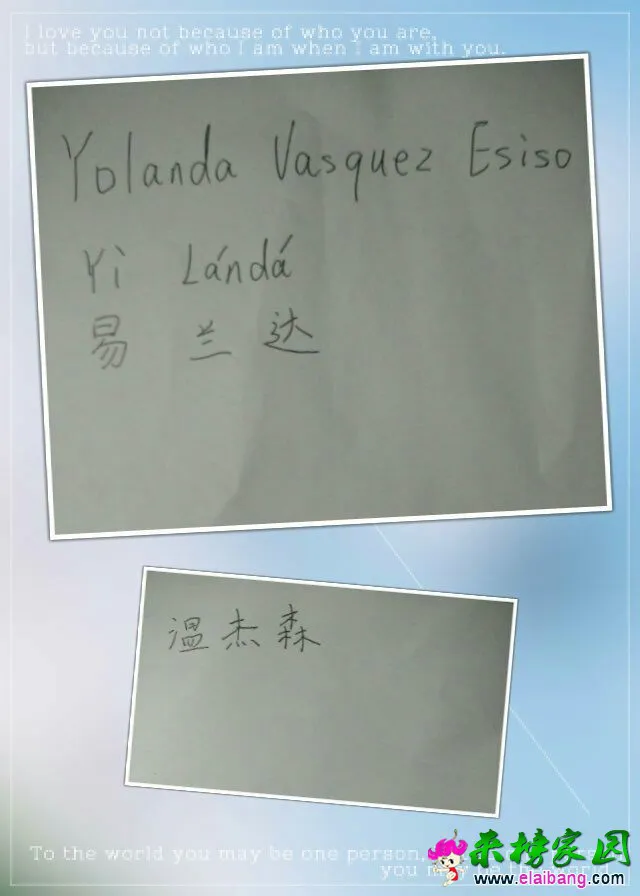 I love you not because of who you are,
but because of who I am when I am with you.
Yolanda Vasquez Esiso
Yì Lándá
易 兰 达
温杰森
To the world you may be one person,
you may be the world
来榜家园
www.elaibang.com